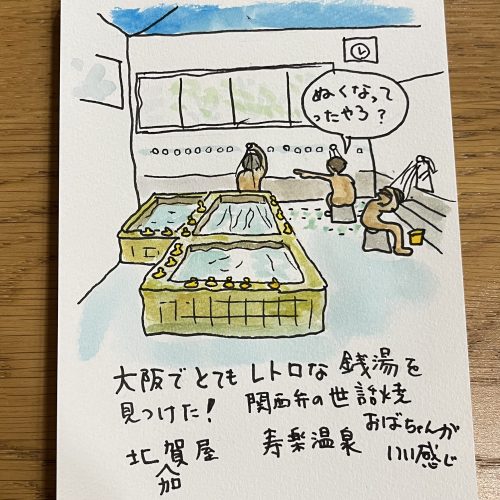 ぬくなって
ったやろ？
大阪でとてもレトロな銭湯を
見つけた！ 関西弁の世話焼
おばちゃんが
いい感じ
北加賀屋 寿楽温泉